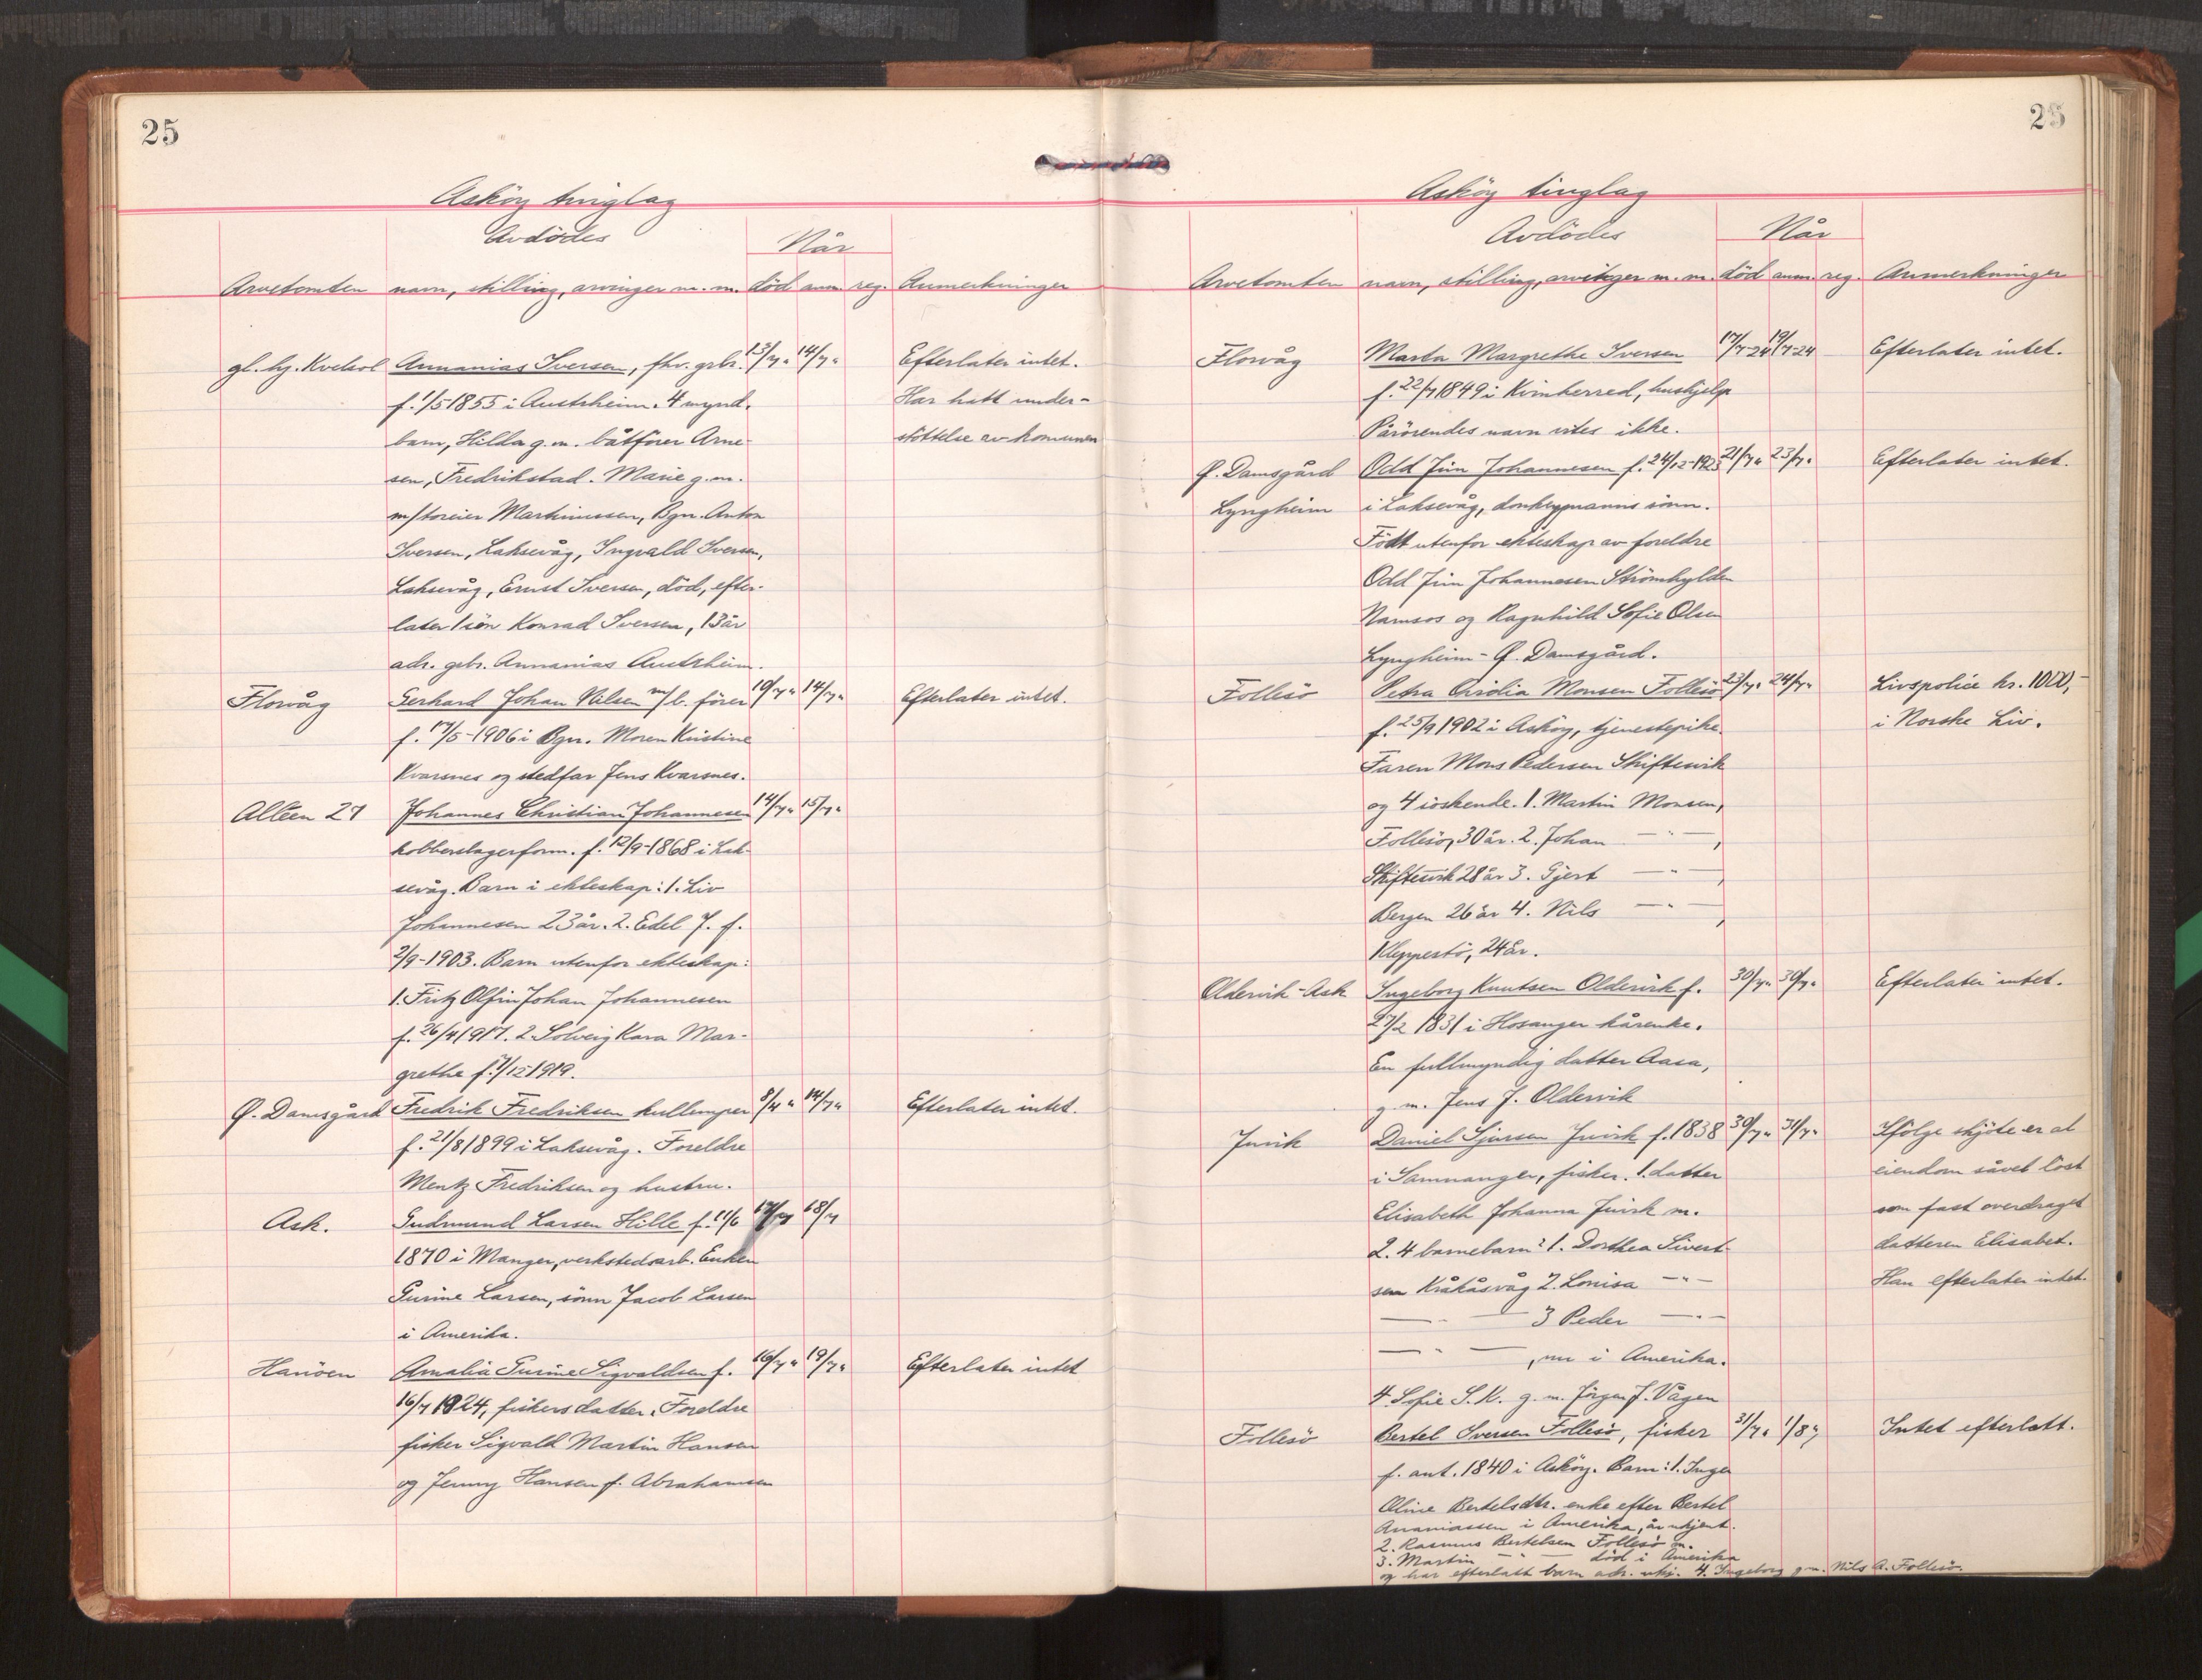 25
Asköy tinglag
Avdödes
Når
Arvetomten navn, stilling, arvinger m.m. död anm. reg. Anmerkninger
gl. hj. Kvelsol Annanias Iversen, fhv. grbr. 13/7 " 14/7 " Efterlater intet.
f. 1/5 1855 i Austrheim. 4 mynd. Har hatt under-
barn, Hilda g.m. båtförer Arne- stöttelse av komunen
sen, Fredrikstad. Marie g.m.
m/toreier Martinussen, Bgn. Anton
Iversen, Laksevåg, Ingvald Iversen,
Laksevåg, Ernst Iversen, död, efter-
later 1 sön Konrad Iversen, 13 år
adr. grbr. Annanias Austrheim.
Florvåg Gerhard Johan Nilsen m/b. förer 10/7 " 14/7 " Efterlater intet.
f. 17/5-1906 i Bgn. Moren Kristine
Kvarsnes og stedfar Jens Kvarsnes.
Alléen 27 Johannes Christian Johannesen 14/7 " 15/7 "
kobberslagerform. f. 12/9-1868 i Lak-
sevåg. Barn i ekteskap: 1. Liv
Johannesen 23 år. 2. Edel J. f.
2/9-1903. Barn utenfor ekteskap:
1. Fritz Olfin Johan Johannesen
f. 26/4 1917. 2. Solveig Kara Mar-
grethe f. 7/12 1919.
Ø. Damsgård Fredrik Fredriksen kullemper 8/4 " 14/7 " Efterlater intet.
f. 21/8 1899 i Laksevåg. Foreldre
Mentz Fredriksen og hustru.
Ask. Gudmund Larsen Hille f. 11/6 17/7 18/7
1870 i Manger, verkstedsarb. Enken
Gurine Larsen, sönn Jacob Larsen
i Amerika.
Hanöen Amalia Gurine Sigvaldsen f. 16/7 " 19/7 " Efterlater intet
16/7 1924, fiskers datter. Foreldre
fisker Sigvald Martin Hansen
og Jenny Hansen f. Abrahamsen
25
Asköy tinglag
Avdödes
Når
Arvetomten navn, stilling, arvinger m.m. död anm. reg. Anmerkninger
Florvåg Marta Margrethe Iversen 17/7-24 19/7-24 Efterlater intet.
f. 22/7 1849 i Kvinherred, hushjelp
Pårörendes navn vites ikke.
Ø. Damsgård Odd Jim Johannesen f. 24/12-1923 21/7 " 23/7 " Efterlater intet.
Lyngheim i Laksevåg, donkeymanns sönn.
Födt utenfor ekteskap av foreldre
Odd Jim Johannesen Strömhylden
Namsos og Ragnhild Sofie Olsen
Lyngheim - Ø. Damsgård.
Follesö Petra Monsen Follesö 23/7 " 24/7 " Livspolice kr. 1000,-
f. 25/9 1902 i Asköy, tjenestepike. i Norske Liv.
Faren Mons Pedersen Skiftesvik
og 4 söskende. 1. Martin Monsen,
Follesö, 30 år. 2. Johan — " — ,
Skiftesvik 28 år 3. Gjert — " — ,
Bergen 26 år 4. Nils — " — ,
Kleppestö, 24 år.
Oldervik - Ask Ingeborg Knutsen Oldervik f. 30/7 " 30/7 " Efterlater intet.
27/2 1831 i Hosanger kårenke.
En fullmyndig datter Aasa,
g. m. Jens J. Oldervik
Juvik Daniel Sjursen Juvik f. 1838 30/7 " 31/7 " Ifölge skjöte er al
i Samnanger, fisker. 1. datter eiendom såvel löst
Elisabeth Johanna Juvik m. som fast overdraget
2. 4 barnebarn: 1. Dorthea Sivert- datteren Elisabet.
sen Kråkåsvåg 2. Lonisa — " — Han efterlater intet.
— " — 3 Peder — " —
— " — , nu i Amerika.
4 Sofie S. K. g. m. Jörgen J. Vågen
Follesö Bertel Iversen Follesö, fisker 31/7 " 1/8 " Intet efterlatt.
f. ant. 1840 i Asköy. Barn: 1. Inger
Oline Bertelsdtr. enke efter Bertel
Ananiassen i Amerika, år ukjent.
2. Rasmus Bertelsen Follesö m.
3. Martin — " — död i Amerika
og har efterlatt barn adr. ukj. 4. Ingeborg g.m. Nils A. Follesö.